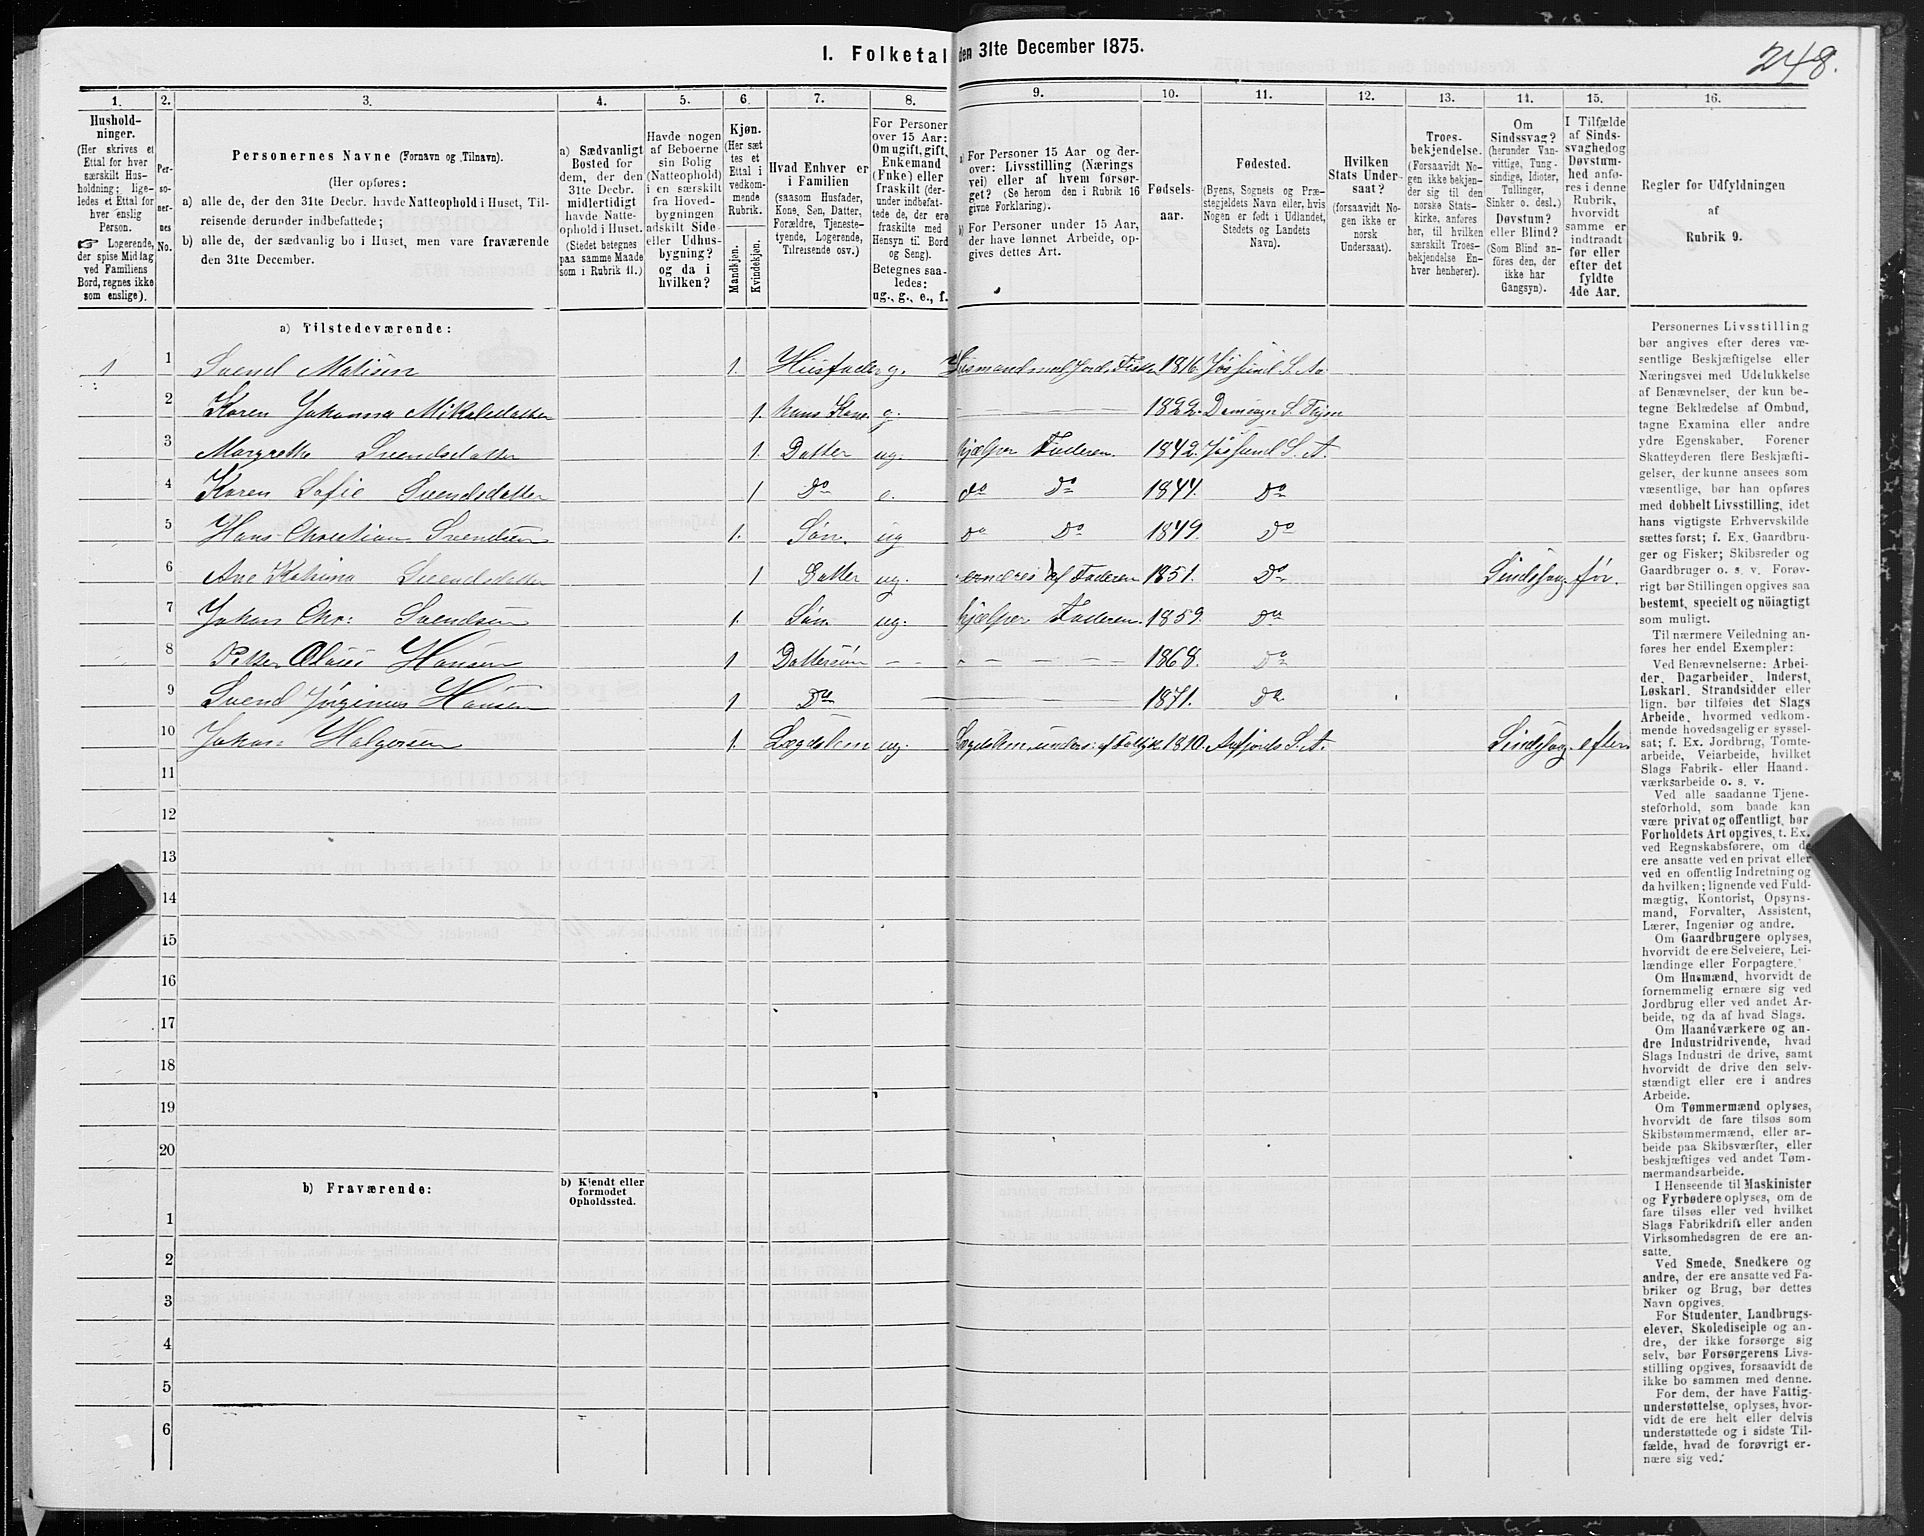 I. Folketal den 31te December 1875.
248.
1. 2. 3. 4. 5. 6. 7. 8. 9. 10. 11. 12. 13. 14. 15. 16.
Hushold-
ninger.
(Her skrives et
Ettal for hver
særskilt Hus-
holdning; lige-
ledes et Ettal for
hver enslig
Person.
☞ Logerende,
der spise Middag
ved Familiens
Bord, regnes ikke
som enslige).
Per-
so-
ner-
nes
No.
Personernes Navne (Fornavn og Tilnavn).
(Her opføres:
a) alle de, der den 31te Decbr. havde Natteophold i Huset, Til-
reisende derunder indbefattede;
b) alle de, der sædvanlig bo i Huset, men vare fraværende
den 31te December.
a) Sædvanligt
Bosted for
dem, der den
31te Decbr.
midlertidigt
havde Natte-
ophold i Huset.
(Stedet betegnes
paa samme Maade
som i Rubrik 11.)
Havde nogen
af Beboerne
sin Bolig
(Natteophold)
i en særskilt
fra Hoved-
bygningen
adskilt Side-
eller Udhus-
bygning?
og da i
hvilken?
Kjøn.
(Her sæt
tes et
Ettal i
vedkom-
mende
Rubrik.
Mandkjøn.
Kvindekjøn.
Hvad Enhver er
i Familien
(saasom Husfader,
Kone, Søn, Datter,
Forældre, Tjeneste-
tyende, Logerende,
Tilreisende osv.)
For Personer
over 15 Aar:
Om ugift, gift,
Enkemand
(Enke) eller
fraskilt (der-
under indbefat-
tede de, der ere
fraskilte med
Hensyn til Bord
og Seng).
Betegnes saa-
ledes:
ug., g., e., f.
a) For Personer 15 Aar og der-
over: Livsstilling (Nærings
vei) eller af hvem forsør-
get? (Se herom den i Rubrik 16
givne Forklaring).
b) For Personer under 15 Aar,
der have lønnet Arbeide, op-
gives dettes Art.
Fødsels-
aar.
Fødested.
(Byens, Sognets og Præ-
stegjeldets Navn eller, hvis
Nogen er født i Udlandet,
Stedets og Landets
Navn).
Hvilken
Stats Under-
saat?
(forsaavidt No-
gen ikke er
norsk
Undersaat).
Troes-
bekjendelse.
(Forsaavidt No-
gen ikke bekjen-
der sig til den
norske Stats-
kirke, anføres
her, til hvilken
særskilt Troes-
bekjendelse En-
hver henhører).
Om
Sindssvag?
(herunder Van-
vittige, Tung-
sindige, Idioter,
Tullinger,
Sinker o. desl.)
Døvstum?
eller Blind?
(Som Blind an-
føres den, der
ikke har
Gangsyn).
I Tilfælde
af Sinds-
svaghed og
Døvstum-
hed anfø-
res i denne
Rubrik,
hvorvidt
samme er
indtraadt
før eller
efter det
fyldte
4de Aar.
Regler for Udfyldningen
af
Rubrik 9.
a) Tilstedeværende:
1 1 Svend Matisen 1. Husfader g. Husmand med Jord, Fisker 1816. Jøssund S. Aa
2 Karen Johanna Mikalsdatter 1. hans Kone. g. 1822. S.
3 Margrethe Svendsdatter 1. Datter ug. hjælper Faderen. 1842. Jøssund S. A.
4 Karen Sofie Svendsdatter 1 Do e. do Do 1844. Do
5 Hans Christian Svendsen 1. Søn. ug do Do 1849. Do
6 Ane Katrina Svendsdatter 1 Datter ug. ernæres af Faderen 1851. Do Sindssvag før.
7 Johan Chr: Svendsen 1. Søn ug. hjælper Faderen. 1859. Do
8 Petter Olaus Hansen 1 Dattersøn 1868. Do
9 Svend Jørginus Hansen 1 Do 1871. Do
10 Johan Holgersen 1. Lægdslem ug. Lægdslem, unders: af Fattigk. 1810. Aafjords S. A. Sindssvag efter
11
12
13
14
15
16
17
18
19
20
b) Fraværende:
b) Kjendt eller
formodet
Opholdssted.
1
2
3
4
5
6
Personernes Livsstilling
bør angives efter deres væ-
sentlige Beskjæftigelse eller
Næringsvei med Udelukkelse
af Benævnelser, der kun be-
tegne Beklædelse af Ombud,
tagne Examina eller andre
ydre Egenskaber. Forener
Skatteyderen flere Beskjæfti-
gelser, der kunne ansees som
væsentlige, bør han opføres
med dobbelt Livsstilling, idet
hans vigtigste Erhvervskilde
sættes først; f. Ex. Gaardbru-
ger og Fisker; Skibsreder og
Gaardbruger o. s. v. Forøv-
rigt bør Stillingen opgives saa
bestemt, specielt og nöiagtigt
som muligt.
Til nærmere Veiledning an-
føres her endel Exempler:
Ved Benævnelserne: Arbei-
der, Dagarbeider, Inderst,
Løskarl, Strandsidder eller
lign. bør tilføies det Slags
Arbeide, hvormed vedkom-
mende hovedsagelig er syssel-
sat; f. Ex. Jordbrug, Tomte-
arbeide, Veiarbeide, hvilket
Slags Fabrik- eller Haand-
værksarbeide o. s. v.
Ved alle saadanne Tjene-
steforhold, som baade kan
være privat og offentligt, bør
Forholdets Art opgives, t. Ex.
ved Regnskabsførere, om de
ere ansatte ved en privat eller
ved en offentlig Indretning og
da hvilken; lignende ved Fuld-
mægtig, Kontorist, Opsyns-
mand, Forvalter, Assistent,
Lærer, Ingeniør og andre.
Om Gaardbrugere oplyses,
hvorvidt de ere Selveiere, Lei-
lændinge eller Forpagtere.
Om Husmænd, hvorvidt de
fornemmelig ernære sig ved
Jordbrug eller ved andet Ar-
beide, og da af hvad Slags.
Om Haandværkere og an-
dre Industridrivende, hvad
Slags Industri de drive, samt
hvorvidt de drive den selv-
stændigt eller ere i andres
Arbeide.
Om Tømmermænd oplyses,
hvorvidt de fare tilsøs som
Skibstømmermænd, eller ar-
beide paa Skibsværfter, eller
beskjæftiges ved andet Tøm-
mermandsarbeide.
I Henseende til Maskinister
og Fyrbødere oplyses, om de
fare tilsøs eller ved hvilket
Slags Fabrikdrift eller anden
Virksomhedsgren de ere an-
satte.
Ved Smede, Snedkere og
andre, der ere ansatte ved Fa-
briker og Brug, bør dettes
Navn opgives.
For Studenter, Landbrugs-
elever, Skoledisciple og an-
dre, der ikke forsørge sig
selv, bør Forsørgerens Livs-
stilling opgives, forsaavidt de
ikke bo sammen med denne.
For dem, der have Fattig-
understøttelse, oplyses, hvor-
vidt de ere helt eller delvis
understøttede og i sidste Til-
fælde, hvad de forøvrigt er-
nære sig ved.